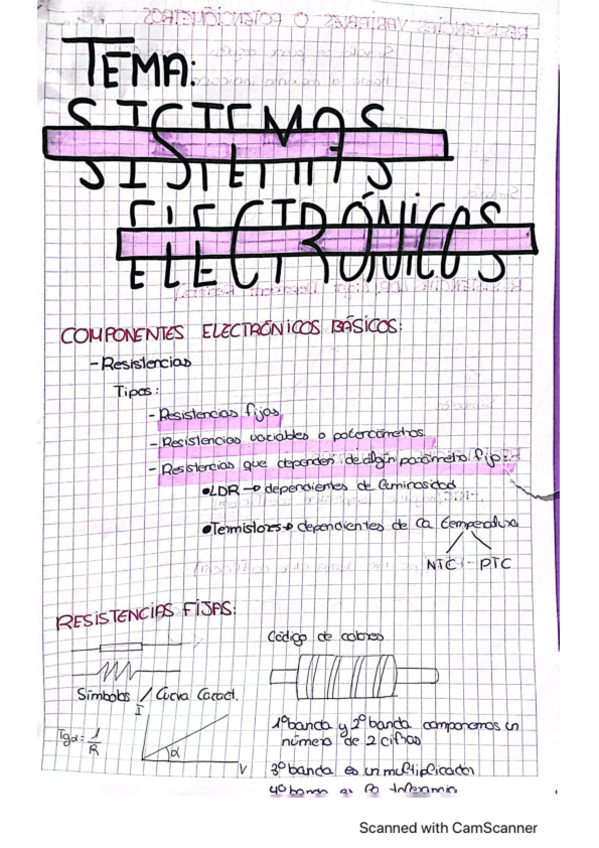 TEMA:
SISTEMAS
ELECTRÓNICOS
COMPONENTES ELECTRÓNICOS BÁSICOS:
- Resistencias
Tipos:
- Resistencias fijas
- Resistencias variables o potenciómetros
- Resistencias que dependen de algún parámetro fijo:
• LDR → dependientes de luminosidad
• Termistores → dependientes de la temperatura
NTC - PTC
RESISTENCIAS FIJAS:
Código de colores
Símbolos / Curva Caract.
I
Tgα = 1/R
α
V
1º banda y 2º banda componemos un
número de 2 cifras
3º banda es un multiplicador
4º banda es la tolerancia
Scanned with CamScanner